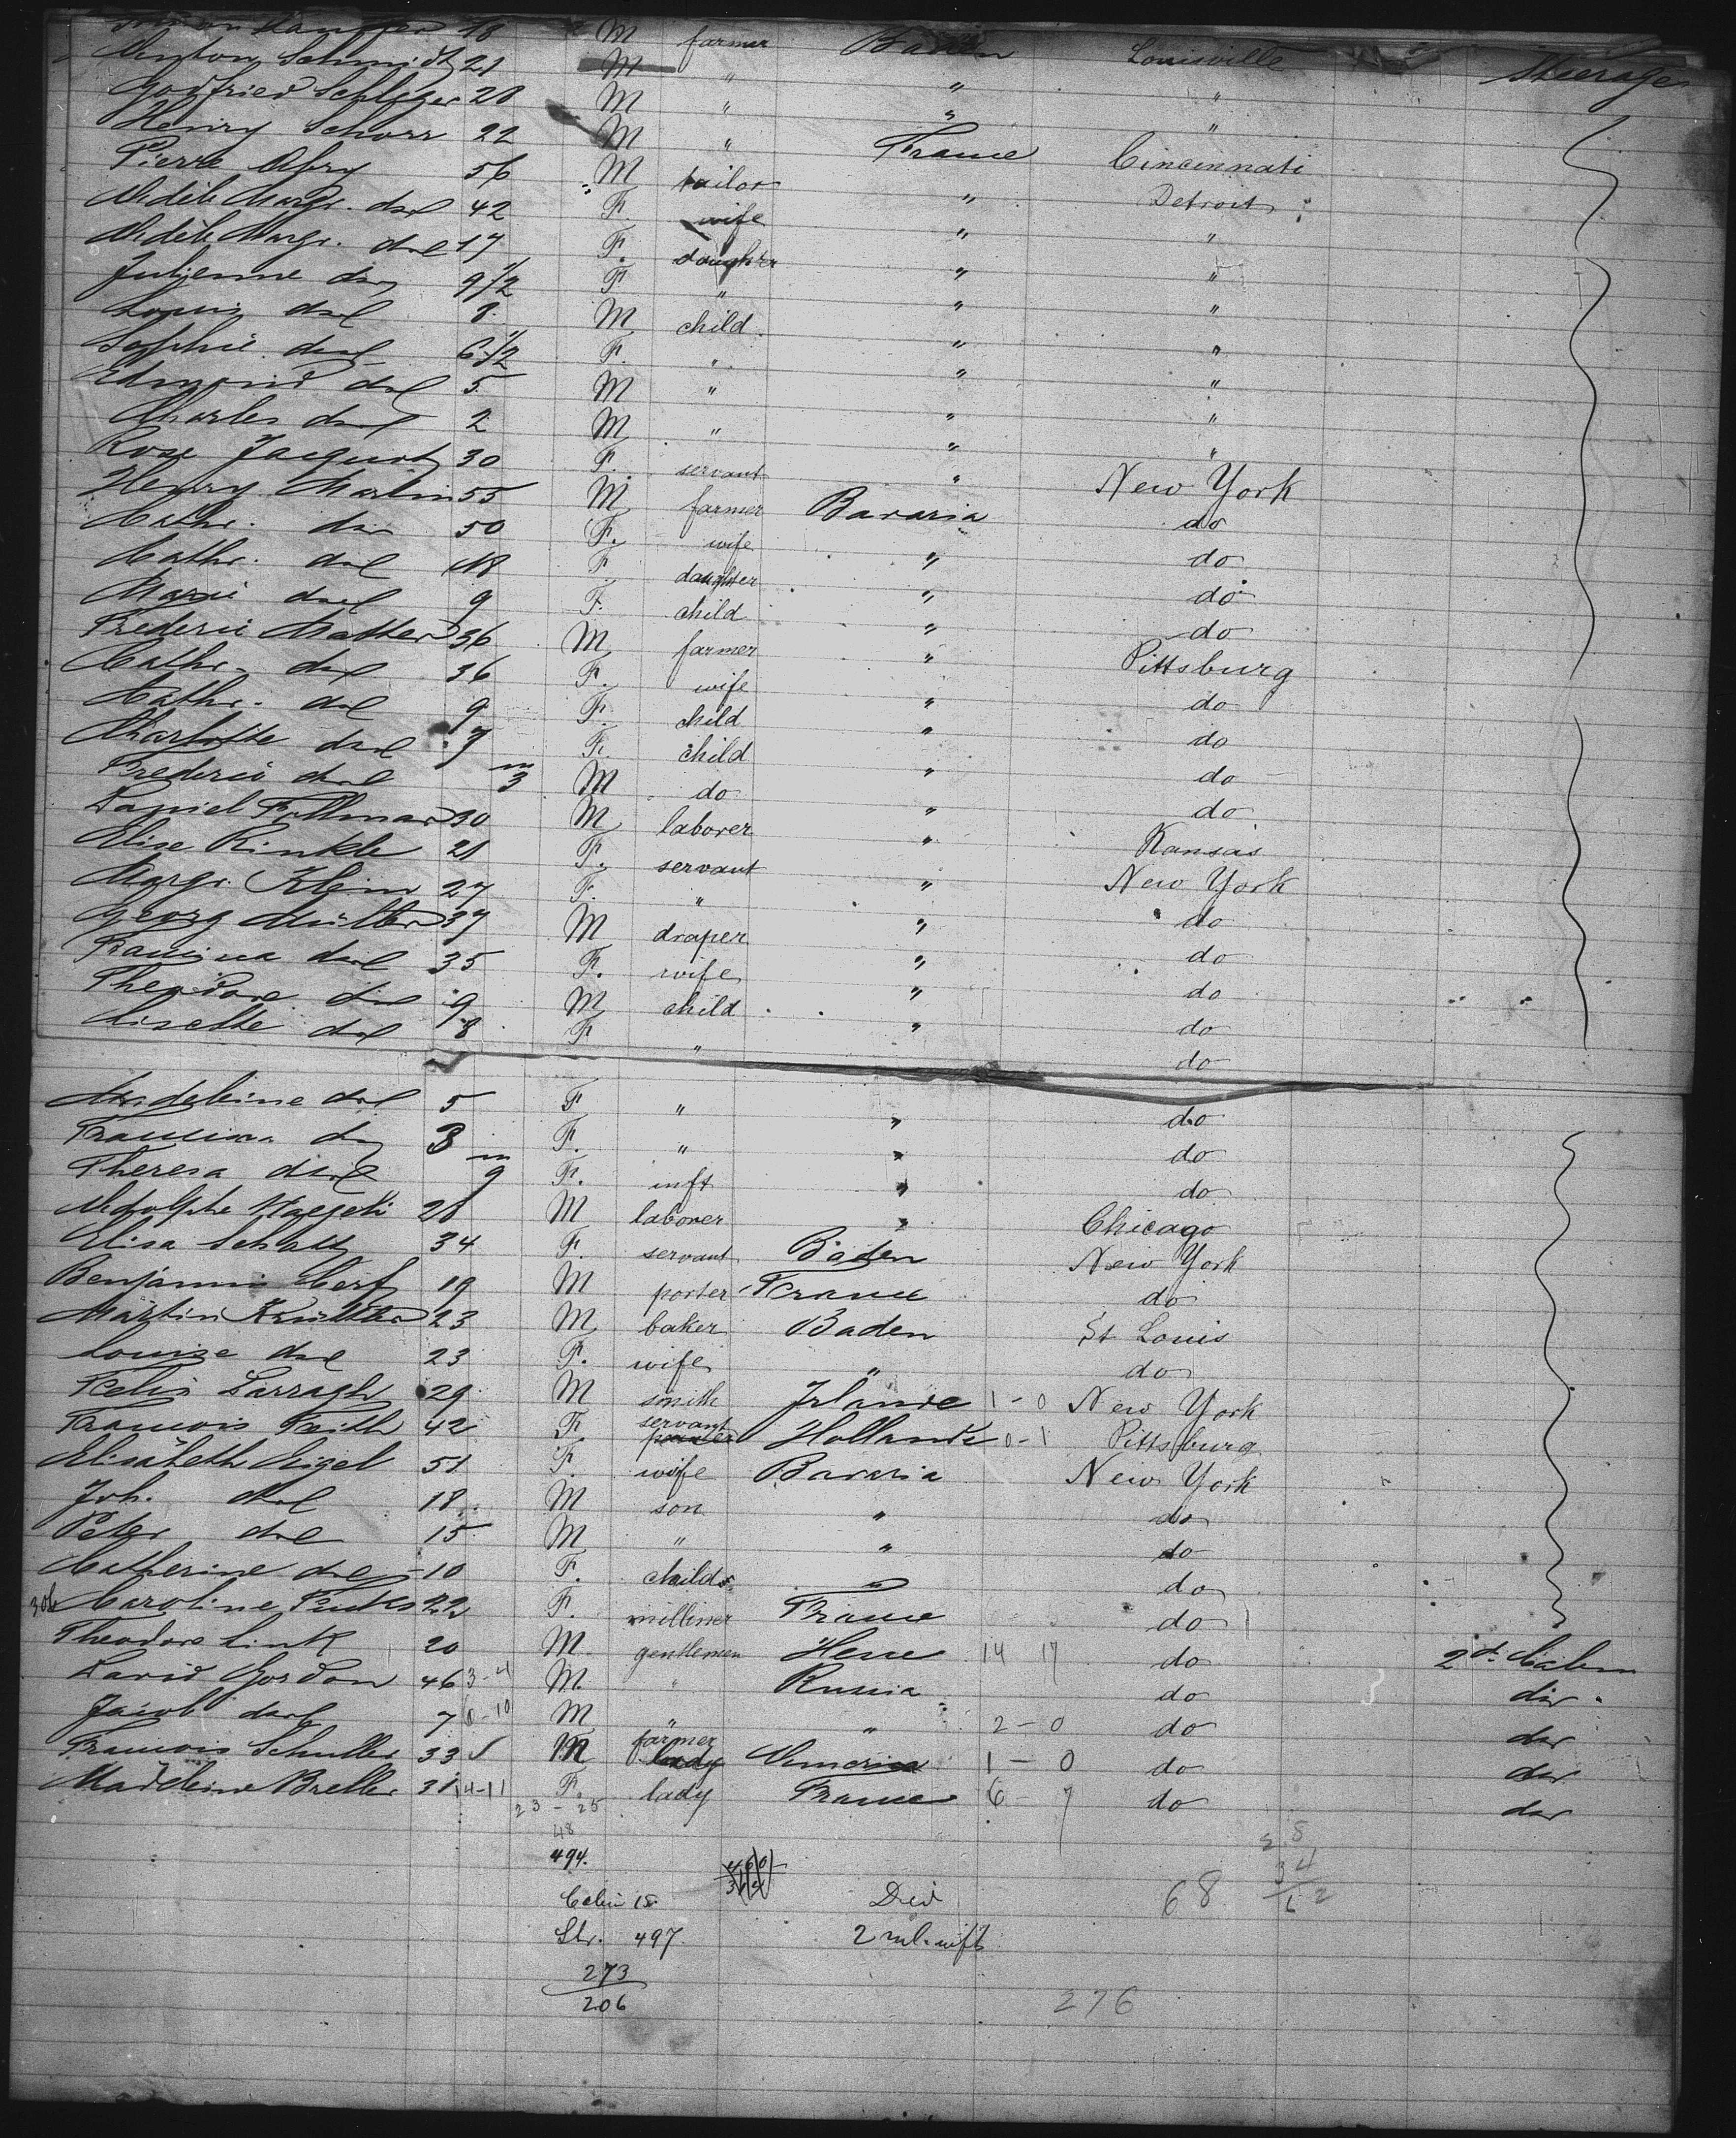 18 M farmer Baden Louisville Steerage
Anton Schmidt 21 M " " "
Godfried Schleger 28 M " " "
Henry Schorr 22 M " France Cincinnati
Pierre Abry 56 M tailor " Detroit
Adèle Margr. do 42 F. wife " "
Adèle Margr. do 17 F. daughter " "
Julienne do 9 1/2 F " " "
Louis do 8 M child " "
Sophie do 6 1/2 F. " " "
Edmond do 5 M " " "
Charles do 2 M " " "
Rose Jacquot 30 F. servant " New York
Henry Martin 55 M farmer Bavaria do
Cathr. do 50 F. wife " do
Cathr. do 18 F daughter " do
Marie do 9 F. child " do
Frederic Matter 36 M farmer " Pittsburg
Cathr. do 36 F. wife " do
Cathr. do 9 F. child " do
Charlotte do 7 F. child " do
Frederic do m 3 M do " do
Daniel Follmar 30 M laborer " Kansas
Elise Rinkle 21 F. servant " New York
Margr. Klein 27 F. " " do
Georg Müller 37 M draper " do
Francisca do 35 F. wife " do
Theodore do 9 M child " do
Lisette do 8 F " do
Madeleine do 5 F " " do
Francisca do 3 F. " " do
Theresa do m 9 F. inft " do
Adolphe Haegeli 28 M laborer " Chicago
Elisa Schatz 34 F. servant Baden New York
Benjamin Cerf 19 M porter France do
Martin Krütter 23 M baker Baden St Louis
Louise do 23 F. wife " do
Felix Darragh 29 M smith Irlande 1-0 New York
Francois Feith 42 F. servant Hollande 0-1 Pittsburg
Elisabeth Leigel 51 F. wife Bavaria New York
Joh. do 18 M son " do
Peter do 15 M " " do
Catherine do 10 F. child " do
306 Caroline Fuchs 22 F. milliner France do
Theodore Link 20 M. gentlemen Hesse 14 17 do 2d. Cabin
David Gordon 46 3-4 M. " Russia do do
Jacob do 7 0-10 M " " 2-0 do do
Francois Schuller 33 M farmer lady America 1-0 do do
Madeleine Breller 31 14-11 F. lady France 6-7 do do
23-25
48
494.
Cabin 18 Died 68
Str. 497. 2 ml. inft
273
206 276